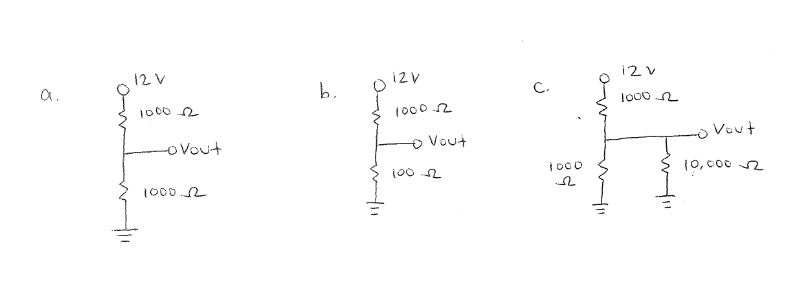 a.
12 V
1000 Ω
Vout
1000 Ω
b.
12 V
1000 Ω
Vout
100 Ω
c.
12 V
1000 Ω
Vout
1000
Ω
10,000 Ω